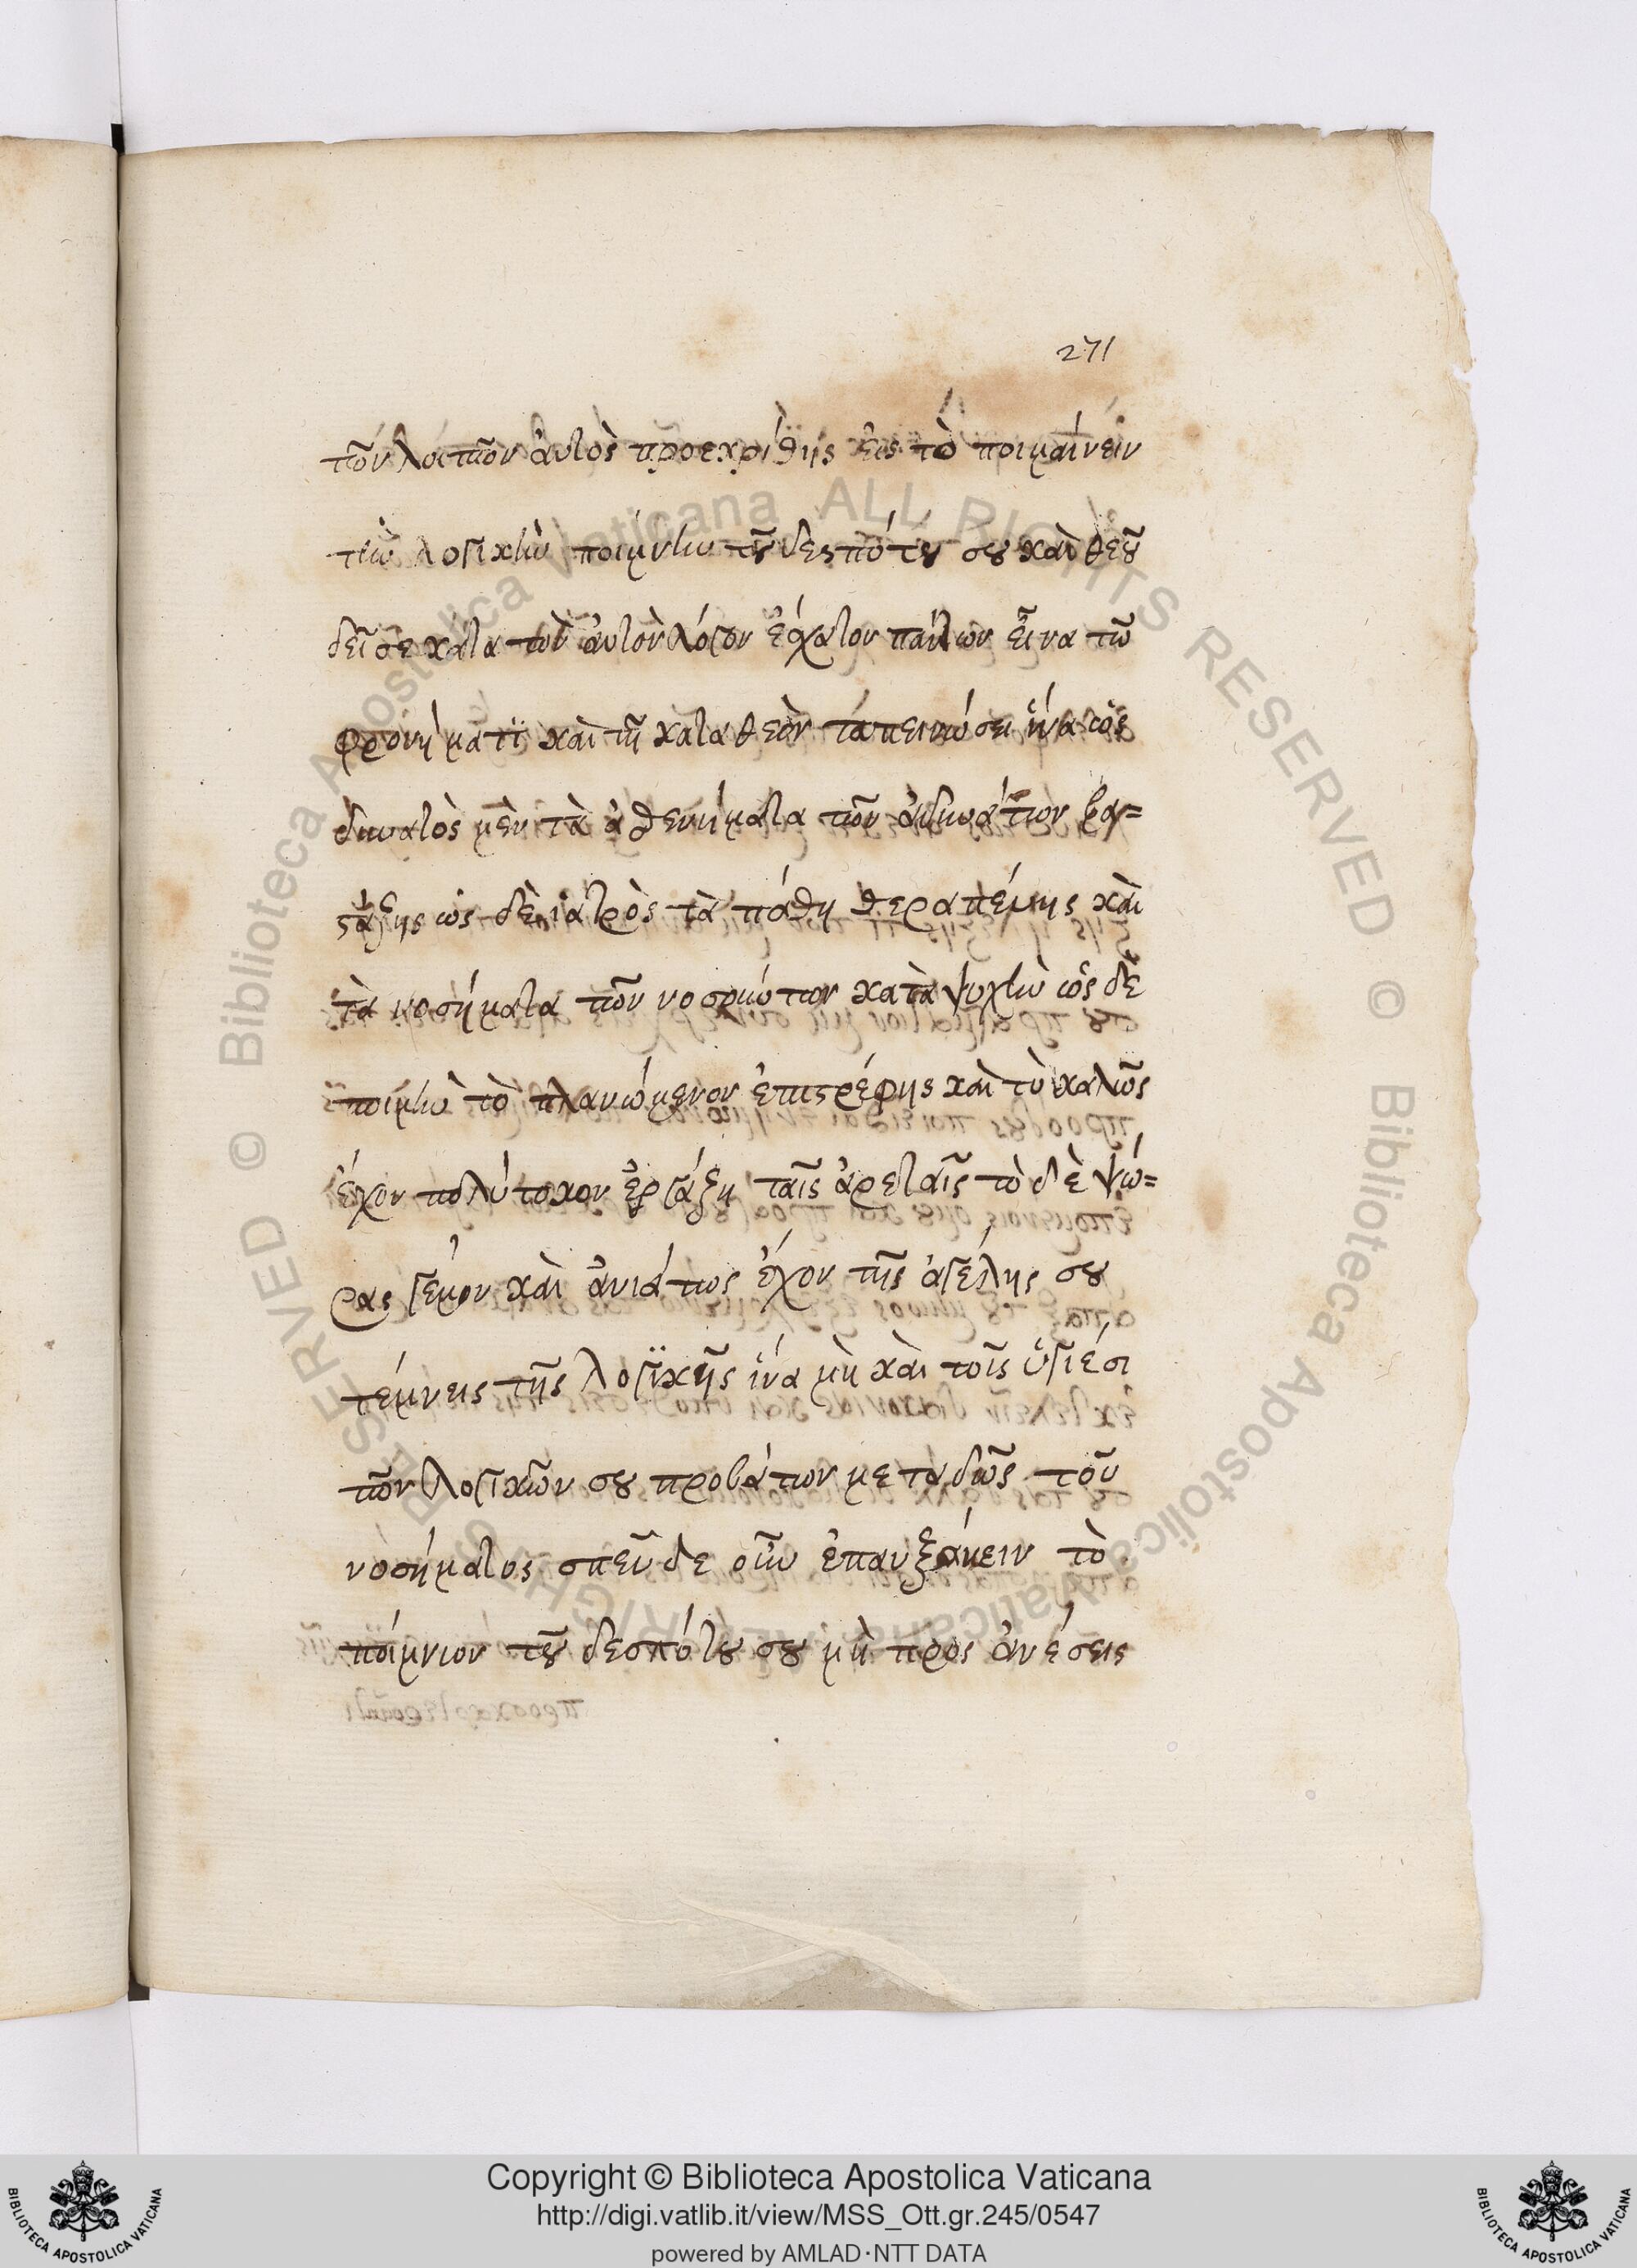 271
τῶν λοιπῶν αὐτὸς προεκρίθης εἰς τὸ ποιμαίνειν
τὴν λογικὴν ποίμνην τοῦ δεσπότου σου καὶ θεοῦ
δεῖ σε κατὰ τὸν αὐτὸν λόγον ἔσχατον πάντων εἶναι τῶ
φρονήματϊ καὶ τῆ κατα θεὸν ταπεινώσει ἵνα ὡς
δυνατὸς μὲν τὰ ἀσθενήματα τῶν ἀδυνάτων βα=
στάξης ὡς δὲ ἰατρὸς τὰ πάθη θεραπεύης καὶ
τὰ νοσήματα τῶν νοσούντων κατὰ ψυχὴν ὡς δὲ
ποιμὴν τὸ πλανώμενον ἐπιστρέφης καὶ τὸ καλῶς
ἔχον πολύτοκον ἐργάξη ταῖς ἀρεταῖς τὸ δὲ ψώ=
ρας γέμον καὶ ἀνιάτως ἔχον τῆς ἀγέλης σου
τέμνεις τῆς λογϊκῆς ἵνα μὴ καὶ τοῖς ὑγιέσι
τῶν λογικῶν σου προβάτων μεταδῶς τοῦ
νοσήματος σπεῦδε οὖν ἐπαυξάνειν τὸ
ποίμνιον τοῦ δεσπότου σου μὴ προς ἀνέσεις
Copyright © Biblioteca Apostolica Vaticana
http://digi.vatlib.it/view/MSS_Ott.gr.245/0547
powered by AMLAD·NTT DATA
BIBLIOTECA APOSTOLICA VATICANA
BIBLIOTECA APOSTOLICA VATICANA
© Biblioteca Apostolica Vaticana ALL RIGHTS RESERVED © Biblioteca Apostolica Vaticana ALL RIGHTS RESERVED